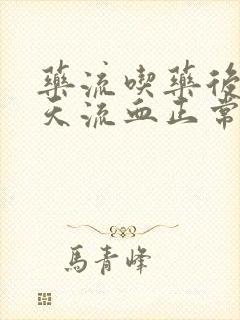 藥流喫藥後
天流血正常
馬青峰